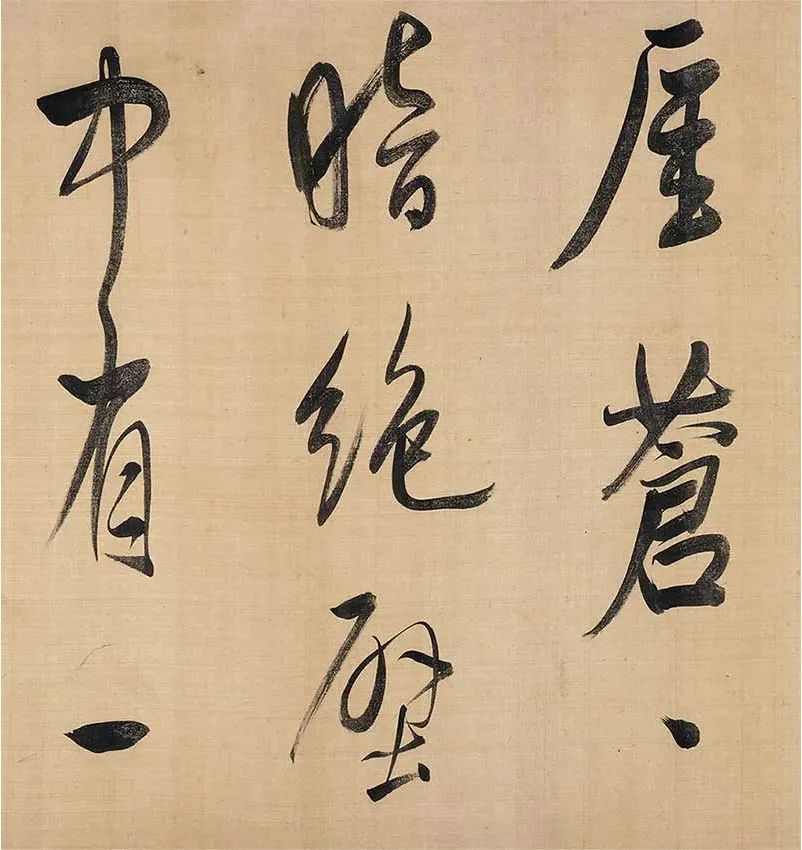 厓蒼丶
暗絶壁
中有一